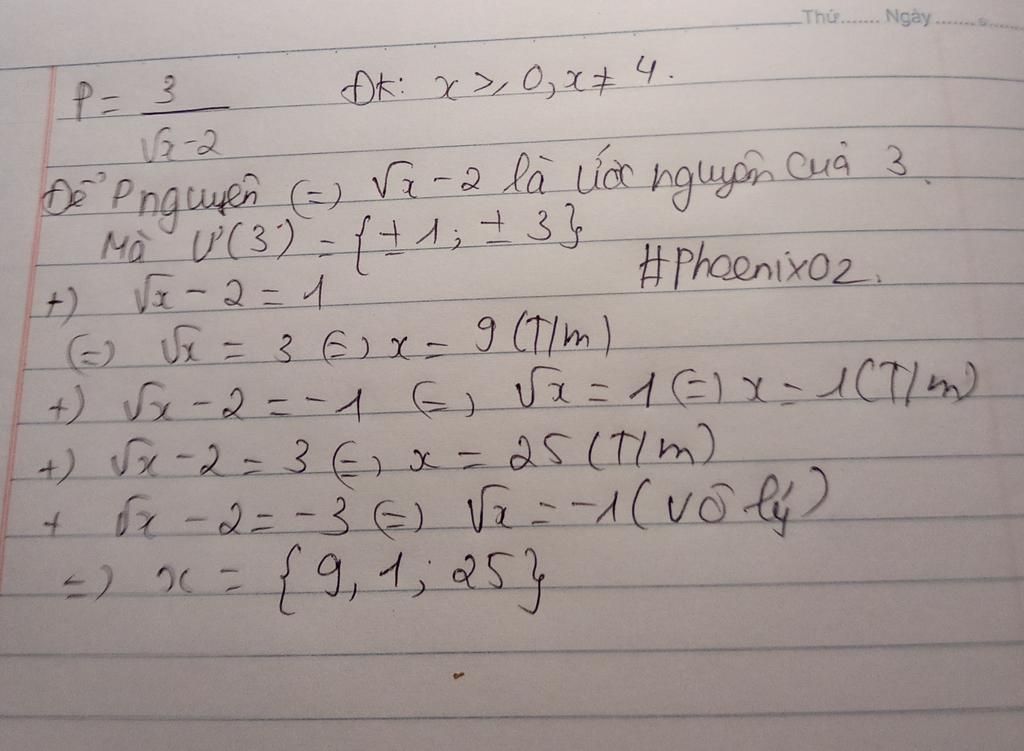 Thứ....... Ngày.......
P = 3 / √x-2 ĐK: x ≥, 0, x ≠ 4.
Để P nguyên (=) √x - 2 là ước nguyên của 3.
Mà Ư(3) = {±1; ±3}
#Phoenix02.
+) √x - 2 = 1
(=) √x = 3 (=) x = 9 (T/m)
+) √x - 2 = -1 (=) √x = 1 (=) x = 1 (T/m)
+) √x - 2 = 3 (=) x = 25 (T/m)
+ √x - 2 = -3 (=) √x = -1 (vô lý)
=) x = {9, 1; 25}